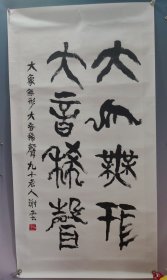 大象無形
大音希聲
大象無形大音希聲九十老人謝雲